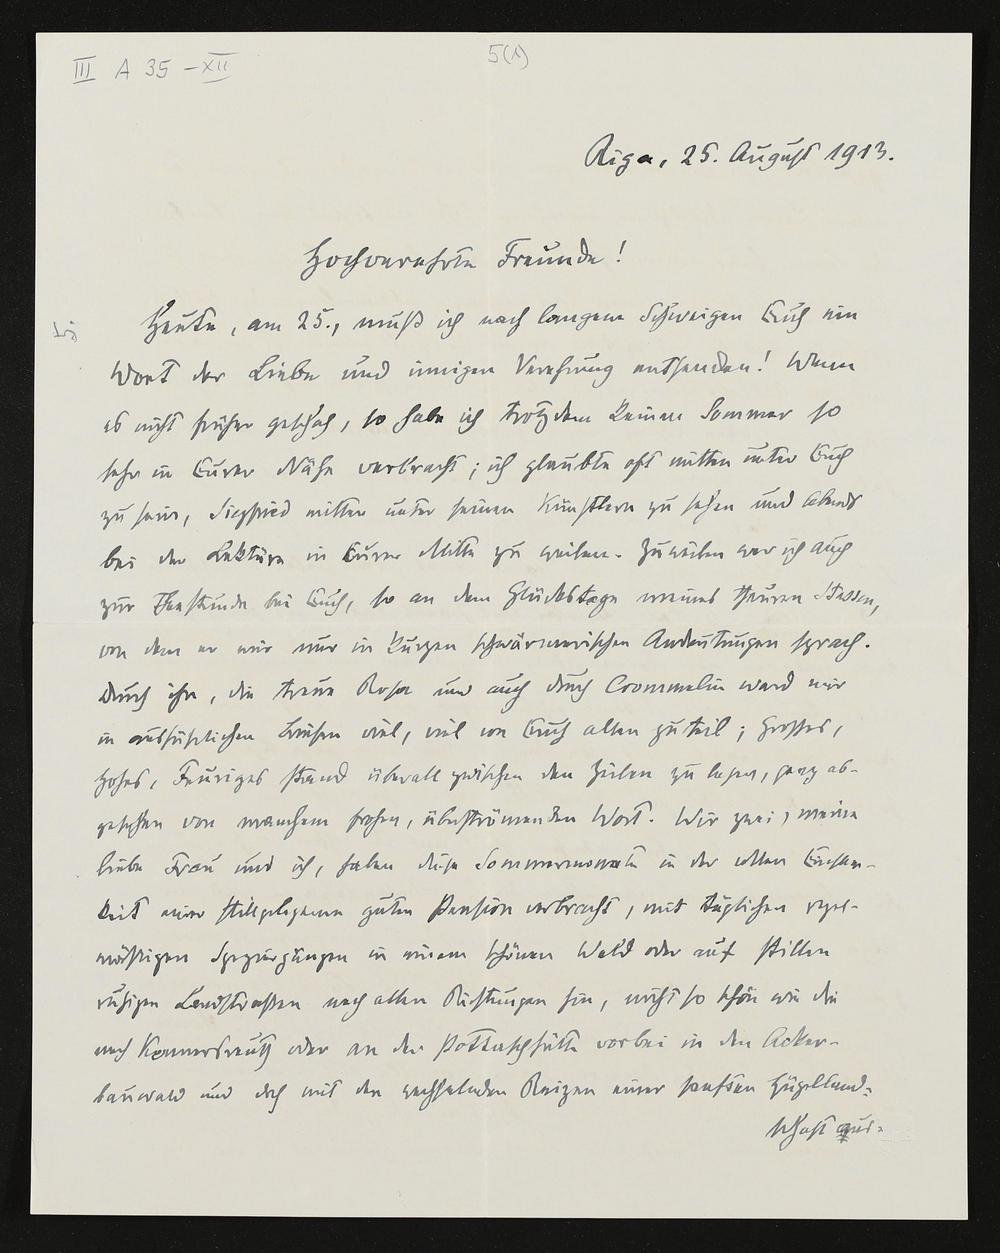 III A 35 – XII
5(1)
Riga, 25. August 1913.
Hochverehrte Freunde!
Heute, am 25., muß ich nach langem Schweigen Euch ein
Wort der Liebe und innigen Verehrung entsenden! Wenn
es nicht früher geschah, so habe ich trotzdem keinen Sommer so
sehr in Eurer Nähe verbracht; ich glaubte oft mitten unter Euch
zu sein, Siegfried mitten unter seinen Künstlern zu sehen und abends
bei der Lektüre in Eurer Mitte zu weilen. Zuweilen war ich auch
zur Theestunde bei Euch, so an dem Glückstage meines theuren
von dem er mir nur in kurzen schwärmerischen Andeutungen sprach.
Durch ihn, die treue Rosa und auch durch Crommelin ward mir
in ausführlichen Briefen viel, viel von Euch allen zuteil; Großes,
Hohes, Feuriges stand überall zwischen den Zeilen zu lesen, ganz ab-
gesehen von manchem frohen, überströmenden Wort. Wir zwei, meine
liebe Frau und ich, haben diese Sommermonate in der vollen Einsam-
keit einer stillgelegenen guten Pension verbracht, mit täglichen regel-
mäßigen Spaziergängen in einem schönen Wald oder auf stillen
ruhigen Landstraßen nach allen Richtungen hin, nicht so schön wie die
nach Konnersreuth oder an der Pottaschhütte vorbei in den Acker-
bauwald und doch mit den wechselnden Reizen einer sanften Hügelland-
schaft aus-